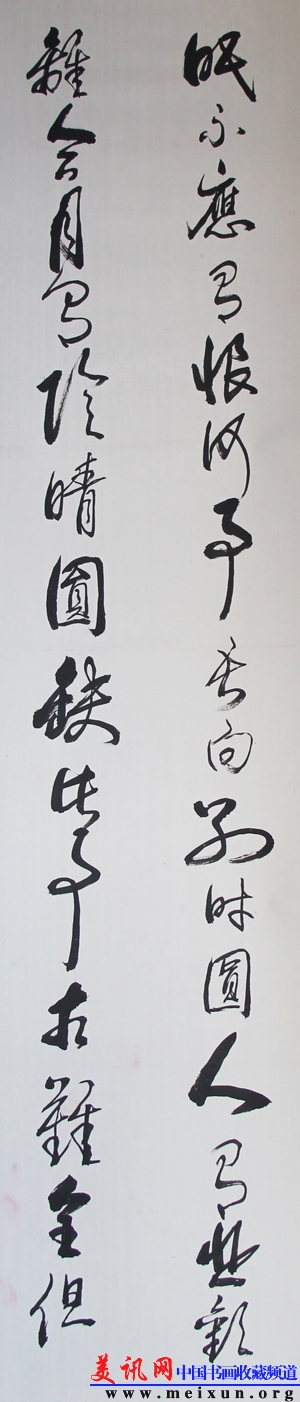 眠不應有恨何事長向別時圓人有悲歡
離合月有陰晴圓缺此事古難全但
美讯网 中国书画收藏频道
www.meixun.org